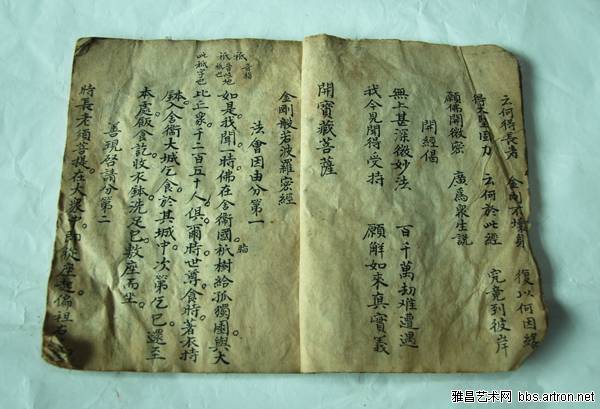 云何得長壽 金剛不壞身 復以何因緣
得大堅固力 云何於此經 究竟到彼岸
願佛開微密 廣爲衆生説
開經偈
無上甚深微妙法 百千萬劫难遭遇
我今見聞得受持 願解如來真實義
開寶藏菩薩
金剛般若波羅密經
法會因由分第一
如是我聞。一時佛在舍衛國祇樹給孤獨園與大
比丘衆。千二百五十人俱。爾時世尊。食時。著衣持
鉢。入舍衛大城乞食。於其城中。次第乞已。還至
本處。飯食訖。收衣鉢。洗足已。敷座而坐。
善現啓請分第二
時長老須菩提。在大衆中。即從座起。偏袒右
雅昌艺术网 bbs.artron.net